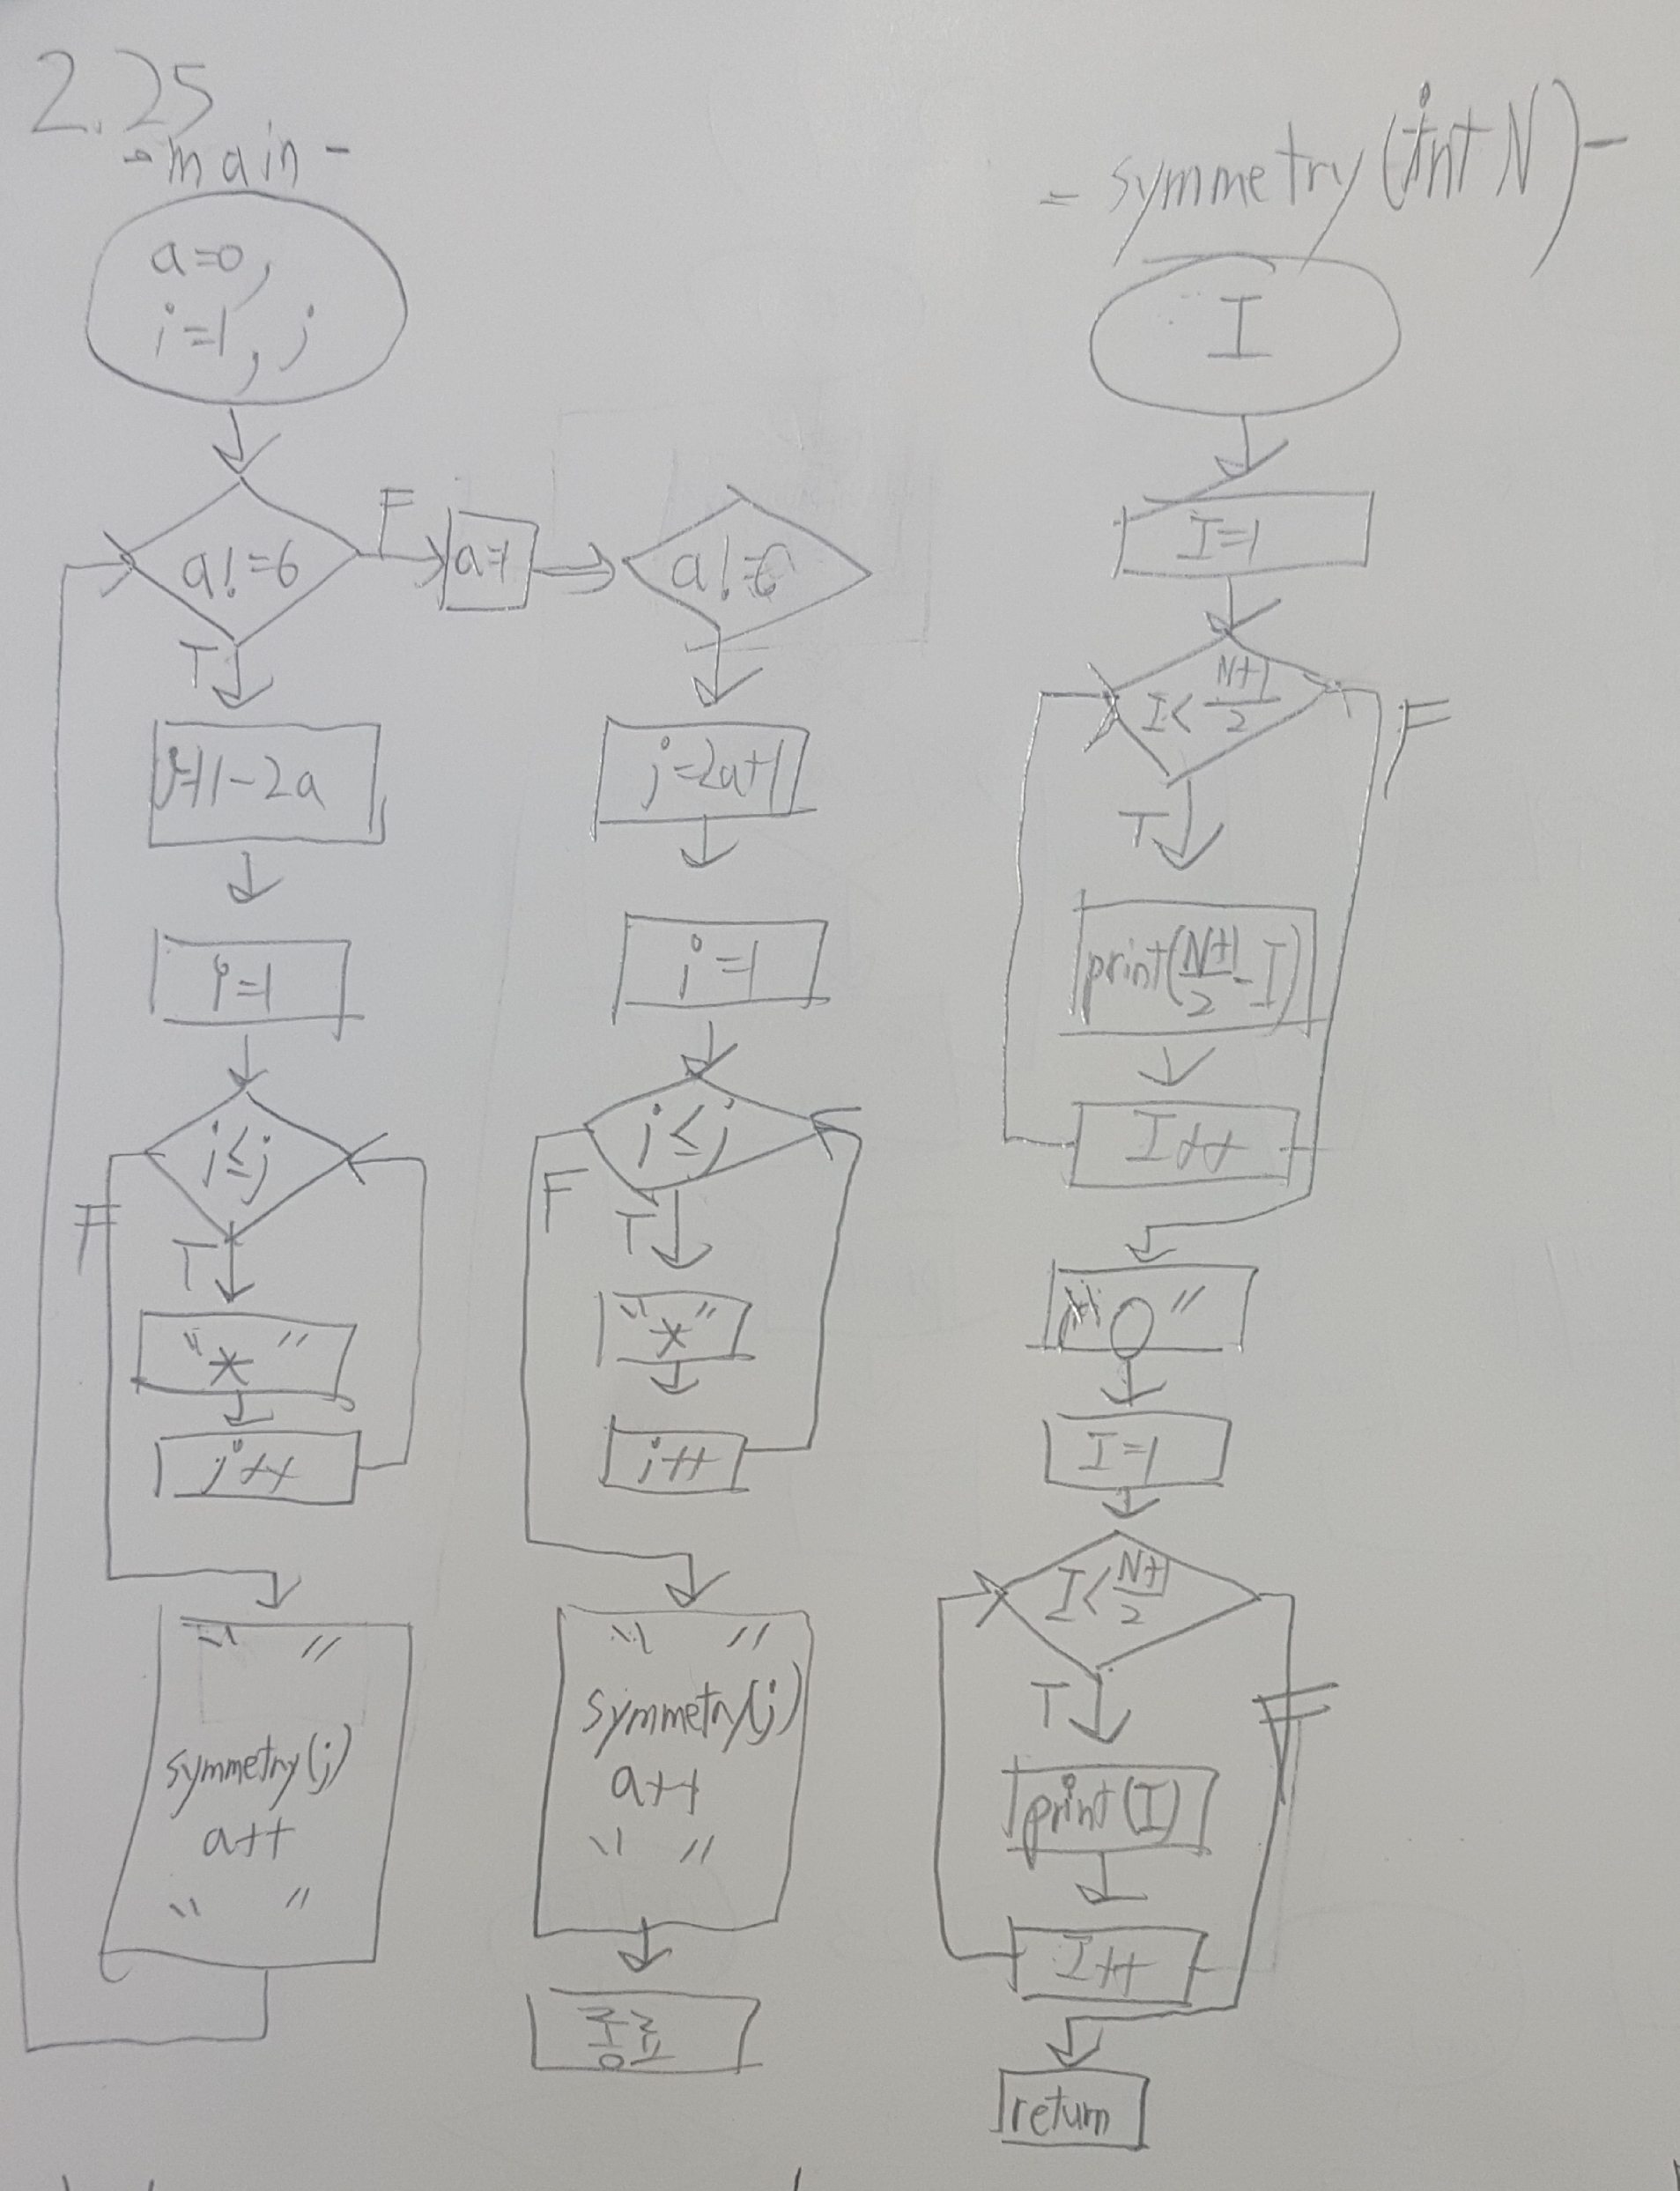 2.25
- main -
a=0,
i=1, j
a!=6
F
T
a=1
a!=6
j=11-2a
i=1
i≤j
F
T
"*"
i++
" "
symmetry(j)
a++
" "
j=2a+1
i=1
i≤j
F
T
"*"
i++
" "
symmetry(j)
a++
" "
종료
= symmetry(int N) -
I
I=1
I< N+1/2
F
T
print(N+1/2 - I)
I++
"0"
I=1
I< N+1/2
T
F
print(I)
I++
return